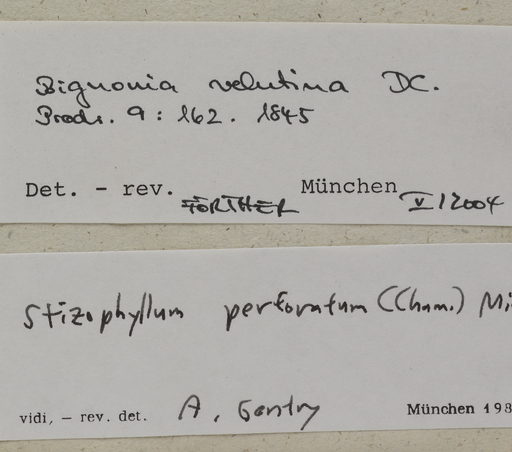 Bignonia velutina DC.
Prodr. 9 : 162. 1845
Det. - rev. FÖRTHER München V/2004
Stizophyllum perforatum (Cham.) Mi
vidi, – rev. det. A. Gentry München 198